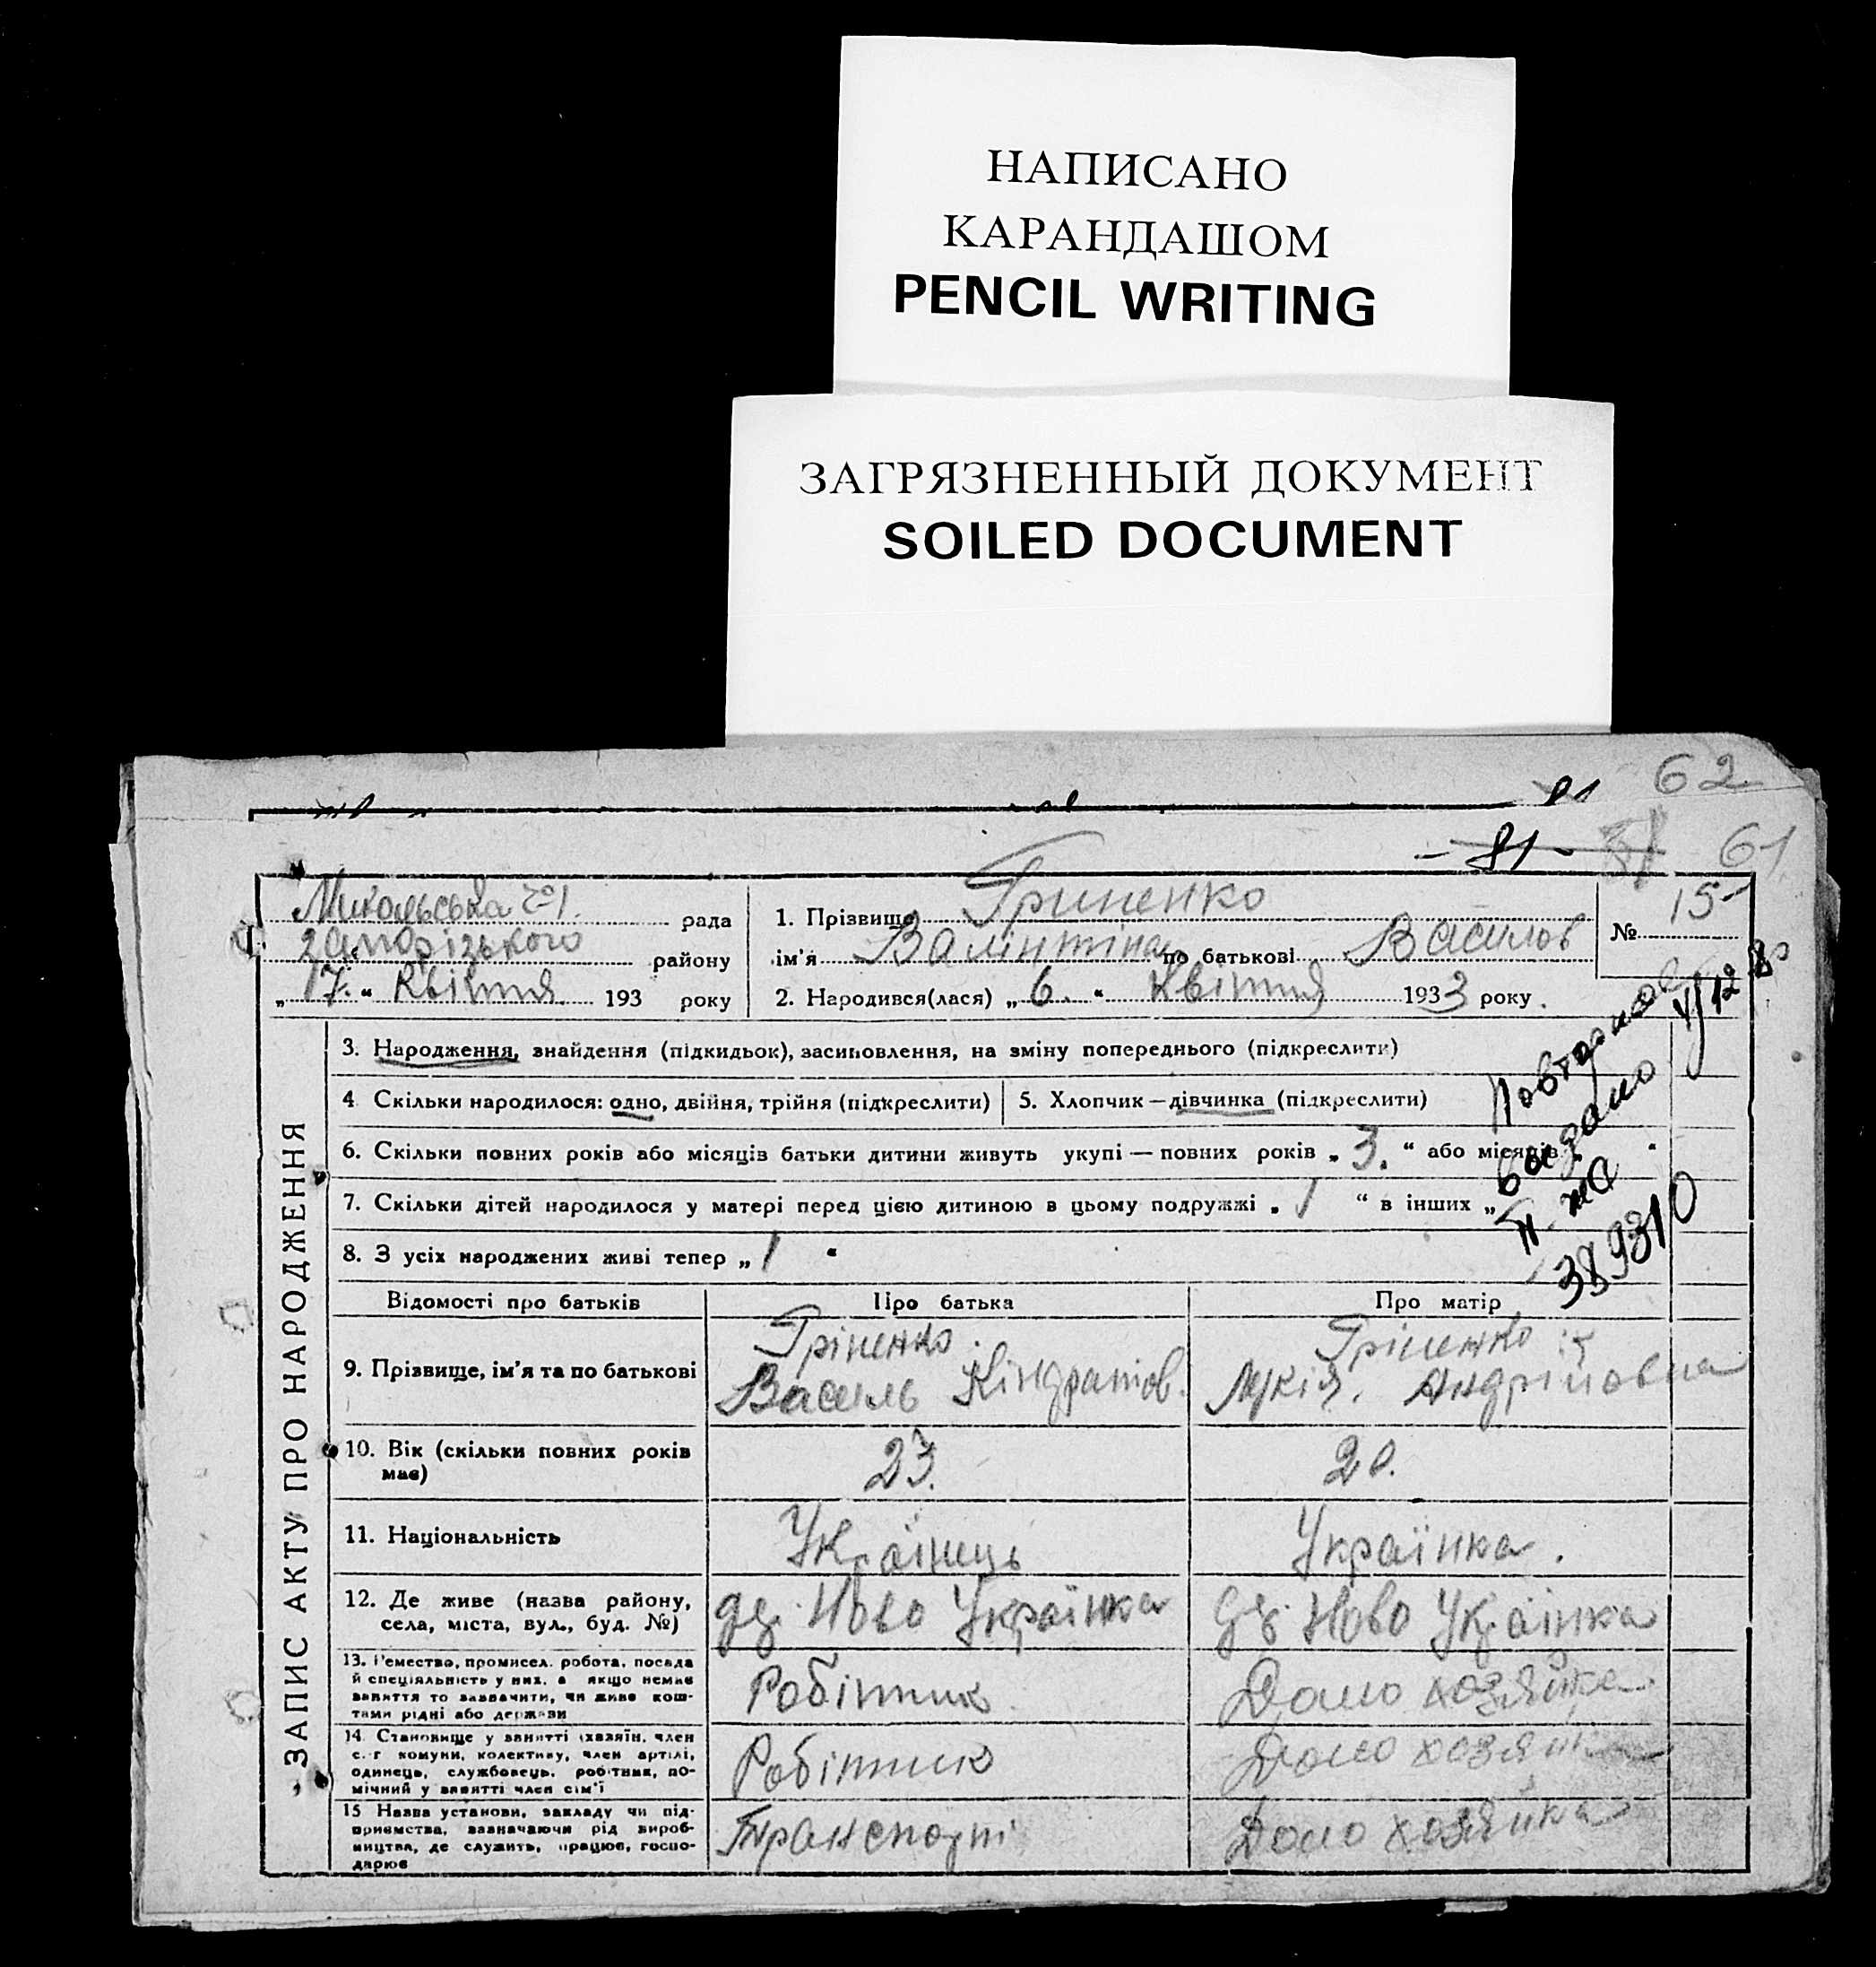 НАПИСАНО
КАРАНДАШОМ
PENCIL WRITING
ЗАГРЯЗНЕННЫЙ ДОКУМЕНТ
SOILED DOCUMENT
62
81
- 81 -
61
Микольська №1. рада
Запорізького району
„ 17. “ Квітня 193 року
1. Прізвище Гриненко
ім'я Валінтіна по батькові Василов
2. Народився(лася) „ 6. “ Квітня 1933 року.
№ 15
ЗАПИС АКТУ ПРО НАРОДЖЕННЯ
3. Народження, знайдення (підкидьок), засиновлення, на зміну попереднього (підкреслити)
4 Скільки народилося: одно, двійня, трійня (підкреслити)
5. Хлопчик—дівчинка (підкреслити)
6. Скільки повних років або місяців батьки дитини живуть укупі — повних років „ 3. “ або місяців „ “
7. Скільки дітей народилося у матері перед цією дитиною в цьому подружжі „ 1 “ в інших „
8. З усіх народжених живі тепер „ 1 “
Повторное
выдано
389310
Відомості про батьків
Про батька
Про матір
9. Прізвище, ім'я та по батькові
Гріненко
Василь Кіндратов.
Гріненко
Лукія. Андріповна
10. Вік (скільки повних років
має)
23.
20.
11. Національність
Українець
Українка.
12. Де живе (назва району,
села, міста, вул., буд. №)
Ново Українка
Ново Українка
13. Ремество, промисел, робота, посада
й спеціяльність у них, а якщо немає
заняття то зазначити, чи живе кош-
тами рідні або держави
Робітник
Домо хозяйка
14. Становище у занятті (хазяїн, член
с.-г комуни, колективу, член артілі,
одинець, службовець, робітник, по-
мічний у занятті член сім'ї
Робітник
Домо хозяйка
15 Назва установи, закладу чи під-
приємства, зазначаючи рід вироб-
ництва, де служить, працює, госпо-
дарює
Транспорті
Домо хозяйка